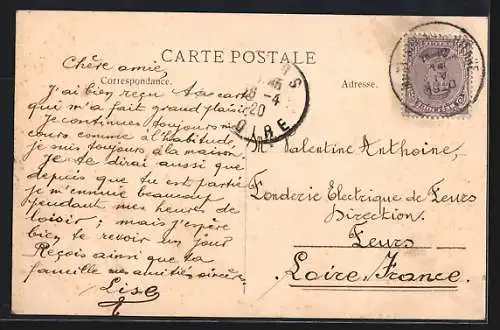 CARTE POSTALE
Correspondance.
Adresse.
Chère amie,
J'ai bien reçu ta carte
qui m'a fait grand plaisir
Je continues toujours mes
cours comme à l'habitude,
je suis toujours à la maison.
Je te dirai aussi que
depuis que tu est partie
je m'ennuie beaucoup
pendant mes heures de
loisir; mais j'espère
bien te revoir un jour
Reçois ainsi que ta
famille mes amitiés sincères.
Lise
6-4
20
OIRE
Valentine Anthoine,
Fonderie Electrique de Feurs
Direction.
Feurs
Loire France.